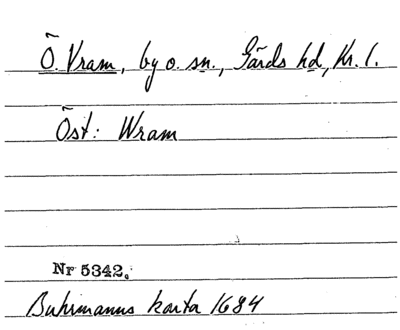 Ö. Vram, by o. sn., Gärds hd, Kr. l.
Öst: Wram
Nr 5342.
Buhrmanns karta 1684